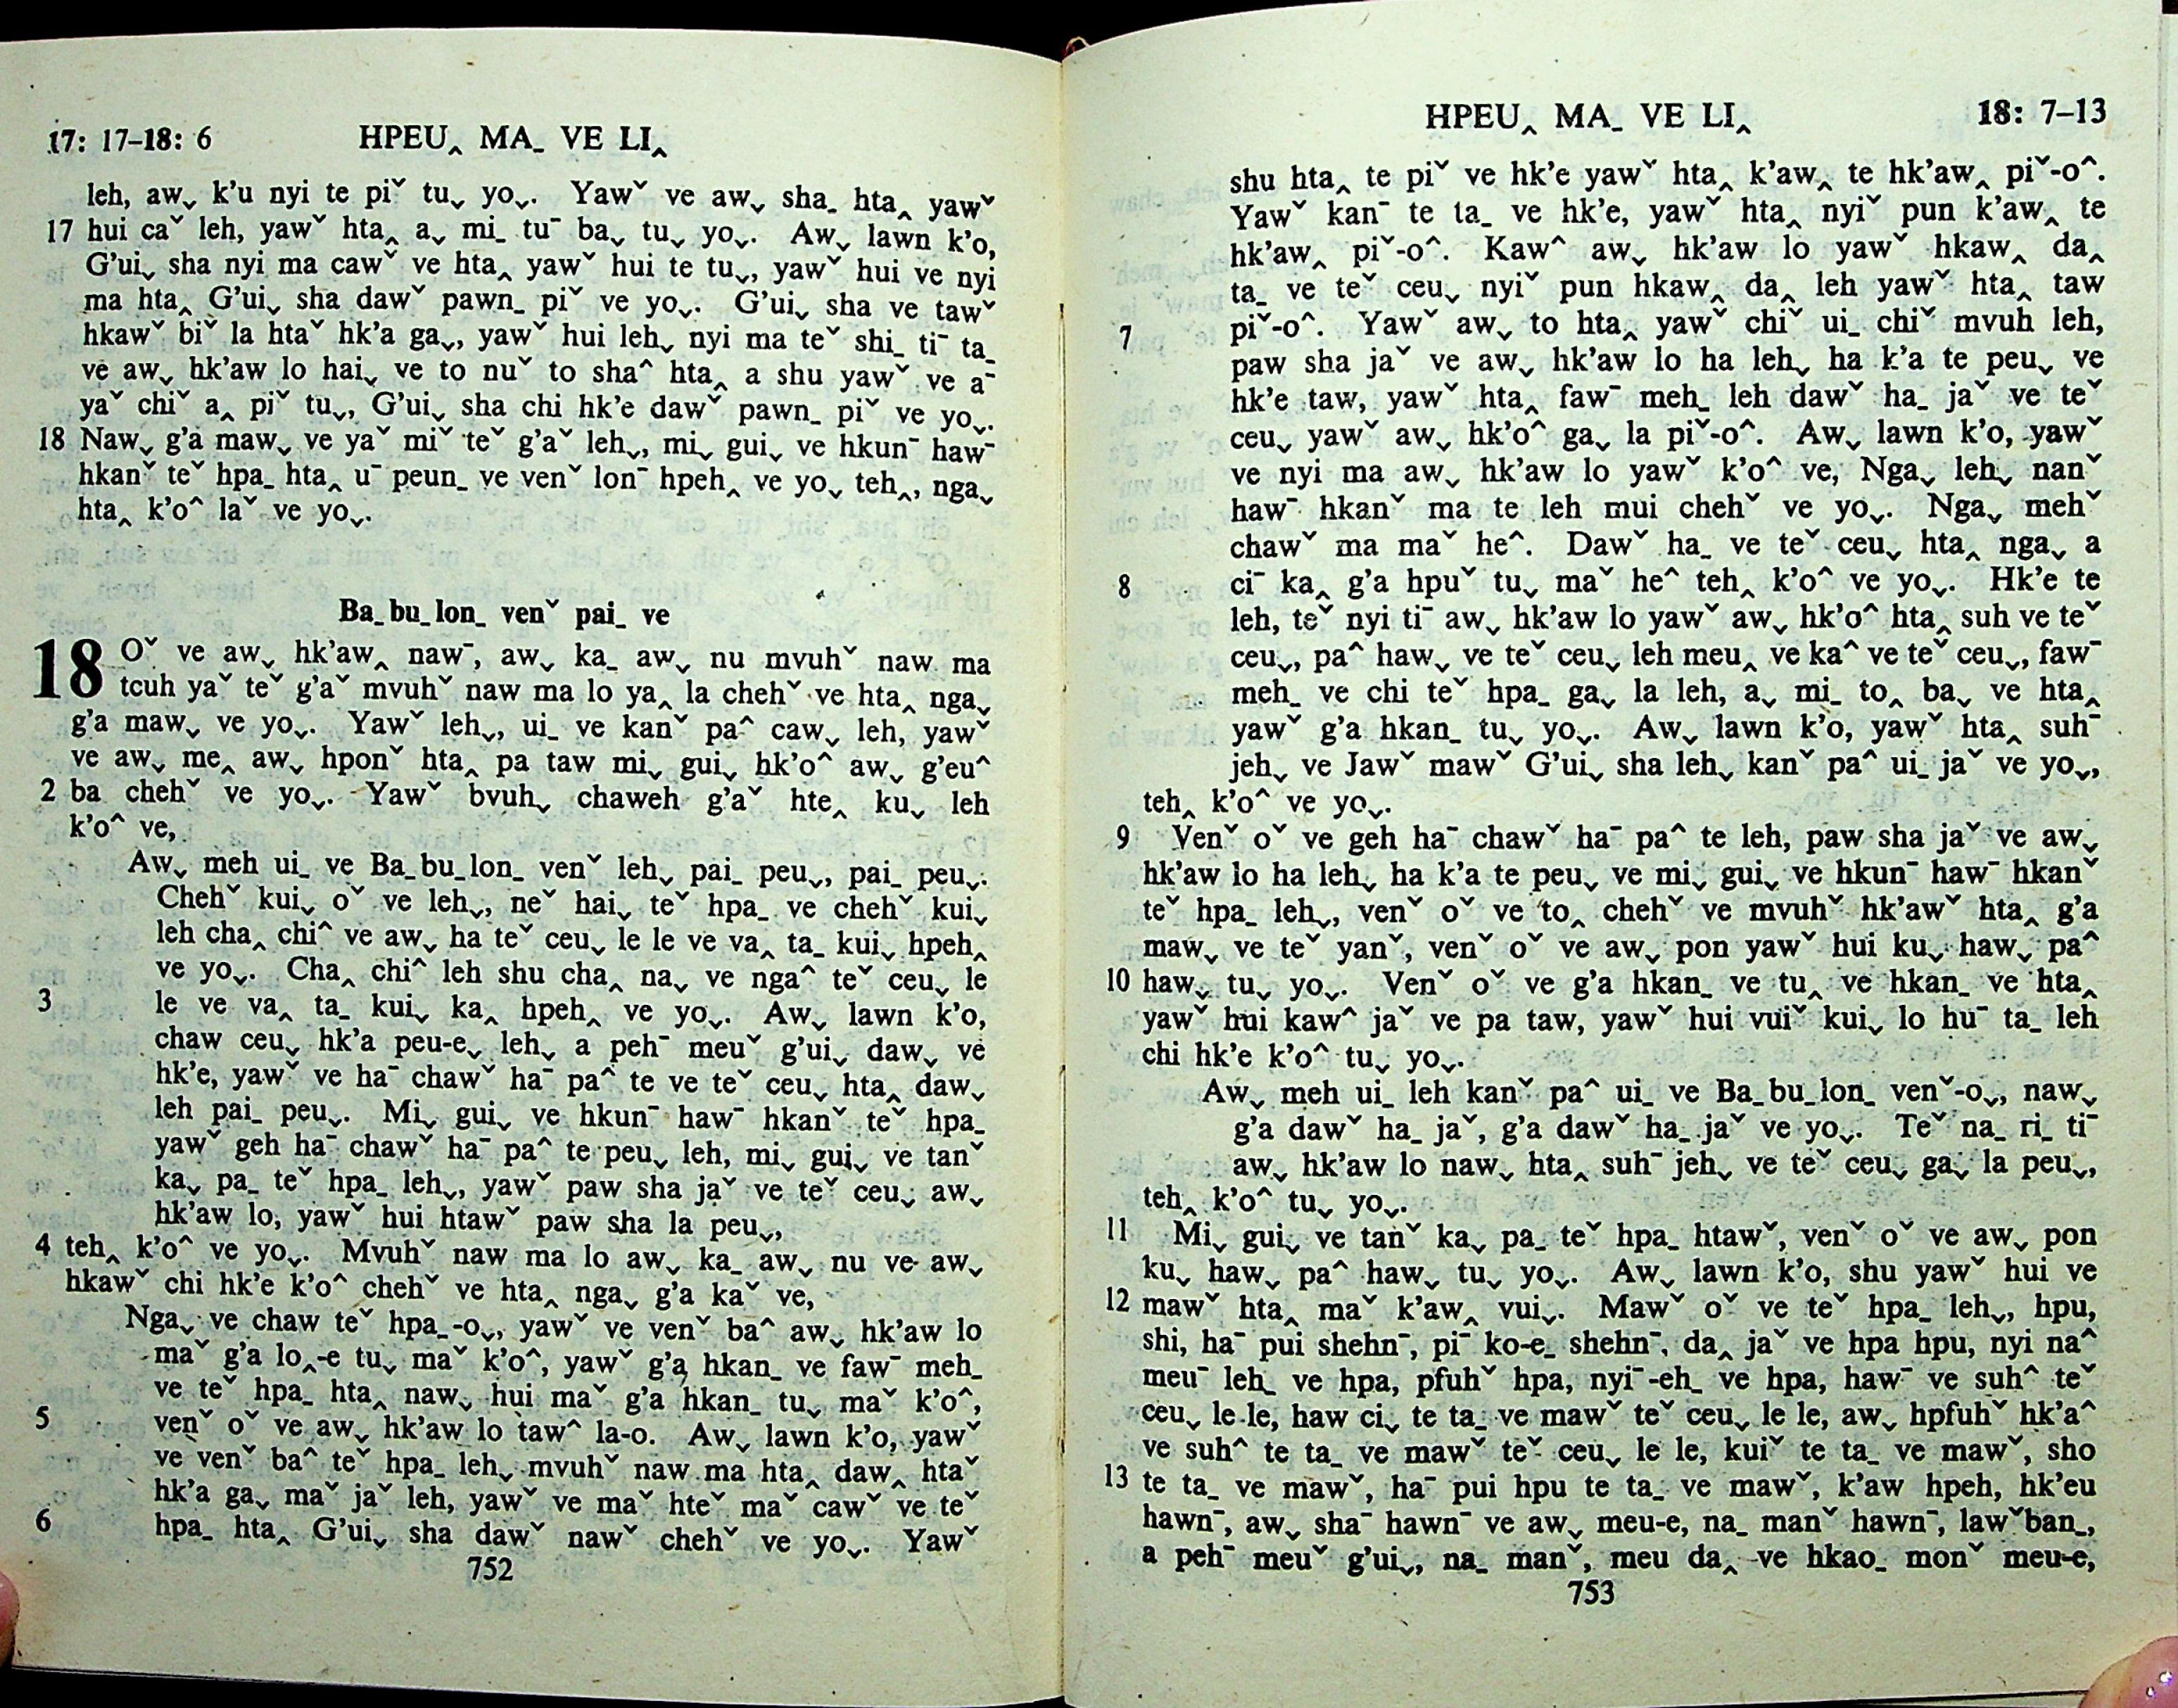 17: 17–18: 6 HPEU‸ MA_ VE LI‸
leh, aw⌄ k’u nyi te piˇ tu⌄ yo⌄. Yawˇ ve aw⌄ sha_ hta‸ yawˇ
17 hui caˇ leh, yawˇ hta‸ a⌄ mi_ tu¯ ba⌄ tu⌄ yo⌄. Aw⌄ lawn k’o,
G’ui⌄ sha nyi ma cawˇ ve hta‸ yawˇ hui te tu⌄, yawˇ hui ve nyi
ma hta‸ G’ui⌄ sha dawˇ pawn_ piˇ ve yo⌄. G’ui⌄ sha ve tawˇ
hkawˇ biˇ la htaˇ hk’a ga⌄, yawˇ hui leh⌄ nyi ma teˇ shi_ ti¯ ta_
ve aw⌄ hk’aw lo hai⌄ ve to nuˇ to sha^ hta‸ a shu yawˇ ve a¯
yaˇ chiˇ a‸ piˇ tu⌄, G’ui⌄ sha chi hk’e dawˇ pawn_ piˇ ve yo⌄.
18 Naw⌄ g’a maw⌄ ve yaˇ miˇ teˇ g’aˇ leh⌄, mi⌄ gui⌄ ve hkun¯ haw¯
hkanˇ teˇ hpa_ hta‸ u¯ peun_ ve venˇ lon¯ hpeh‸ ve yo⌄ teh‸, nga⌄
hta‸ k’o^ laˇ ve yo⌄.
Ba_ bu_ lon_ venˇ pai_ ve
18 Oˇ ve aw⌄ hk’aw‸ naw¯, aw⌄ ka_ aw⌄ nu mvuhˇ naw ma
tcuh yaˇ teˇ g’aˇ mvuhˇ naw ma lo ya‸ la chehˇ ve hta‸ nga⌄
g’a maw⌄ ve yo⌄. Yawˇ leh⌄, ui_ ve kanˇ pa^ caw⌄ leh, yawˇ
ve aw⌄ me‸ aw⌄ hponˇ hta‸ pa taw mi⌄ gui⌄ hk’o^ aw⌄ g’eu^
2 ba chehˇ ve yo⌄. Yawˇ bvuh⌄ chaweh g’aˇ hte‸ ku⌄ leh
k’o^ ve,
Aw⌄ meh ui_ ve Ba_ bu_ lon_ venˇ leh⌄ pai_ peu⌄, pai_ peu⌄.
Chehˇ kui⌄ oˇ ve leh⌄, neˇ hai⌄ teˇ hpa_ ve chehˇ kui⌄
leh cha‸ chi^ ve aw⌄ ha teˇ ceu⌄ le le ve va‸ ta_ kui⌄ hpeh‸
ve yo⌄. Cha‸ chi^ leh shu cha‸ na⌄ ve nga^ teˇ ceu⌄ le
3 le ve va‸ ta_ kui⌄ ka‸ hpeh‸ ve yo⌄. Aw⌄ lawn k’o,
chaw ceu⌄ hk’a peu-e⌄ leh⌄ a peh¯ meuˇ g’ui⌄ daw⌄ ve
hk’e, yawˇ ve ha¯ chawˇ ha¯ pa^ te ve teˇ ceu⌄ hta‸ daw⌄
leh pai_ peu⌄. Mi⌄ gui⌄ ve hkun¯ haw¯ hkanˇ teˇ hpa_
yawˇ geh ha¯ chawˇ ha¯ pa^ te peu⌄ leh, mi⌄ gui⌄ ve tanˇ
ka⌄ pa_ teˇ hpa_ leh⌄, yawˇ paw sha jaˇ ve teˇ ceu⌄ aw⌄
hk’aw lo, yawˇ hui htawˇ paw sha la peu⌄,
4 teh‸ k’o^ ve yo⌄. Mvuhˇ naw ma lo aw⌄ ka_ aw⌄ nu ve aw⌄
hkawˇ chi hk’e k’o^ chehˇ ve hta‸ nga⌄ g’a kaˇ ve,
Nga⌄ ve chaw teˇ hpa_-o⌄, yawˇ ve venˇ ba^ aw⌄ hk’aw lo
maˇ g’a lo‸-e tu⌄ maˇ k’o^, yawˇ g’a hkan_ ve faw¯ meh_
ve teˇ hpa_ hta‸ naw⌄ hui maˇ g’a hkan_ tu⌄ maˇ k’o^,
5 venˇ oˇ ve aw⌄ hk’aw lo taw^ la-o. Aw⌄ lawn k’o, yawˇ
ve venˇ ba^ teˇ hpa_ leh⌄ mvuhˇ naw ma hta‸ daw‸ htaˇ
hk’a ga⌄ maˇ jaˇ leh, yawˇ ve maˇ hteˇ maˇ cawˇ ve teˇ
6 hpa_ hta‸ G’ui⌄ sha dawˇ nawˇ chehˇ ve yo⌄. Yawˇ
752
HPEU‸ MA_ VE LI‸ 18: 7–13
shu hta‸ te piˇ ve hk’e yawˇ hta‸ k’aw‸ te hk’aw‸ piˇ-o^.
Yawˇ kan¯ te ta_ ve hk’e, yawˇ hta‸ nyiˇ pun k’aw‸ te
hk’aw‸ piˇ-o^. Kaw^ aw⌄ hk’aw lo yawˇ hkaw‸ da‸
ta_ ve teˇ ceu⌄ nyiˇ pun hkaw‸ da‸ leh yawˇ hta‸ taw
7 piˇ-o^. Yawˇ aw⌄ to hta‸ yawˇ chiˇ ui_ chiˇ mvuh leh,
paw sha jaˇ ve aw⌄ hk’aw lo ha leh⌄ ha k’a te peu⌄ ve
hk’e taw, yawˇ hta‸ faw¯ meh_ leh dawˇ ha_ jaˇ ve teˇ
ceu⌄ yawˇ aw⌄ hk’o^ ga⌄ la piˇ-o^. Aw⌄ lawn k’o, yawˇ
ve nyi ma aw⌄ hk’aw lo yawˇ k’o^ ve, Nga⌄ leh⌄ nanˇ
haw¯ hkanˇ ma te leh mui chehˇ ve yo⌄. Nga⌄ mehˇ
chawˇ ma maˇ he^. Dawˇ ha_ ve teˇ ceu⌄ hta‸ nga⌄ a
8 ci¯ ka‸ g’a hpuˇ tu⌄ maˇ he^ teh‸ k’o^ ve yo⌄. Hk’e te
leh, teˇ nyi ti¯ aw⌄ hk’aw lo yawˇ aw⌄ hk’o^ hta‸ suh ve teˇ
ceu⌄, pa^ haw⌄ ve teˇ ceu⌄ leh meu‸ ve ka^ ve teˇ ceu⌄, faw¯
meh_ ve chi teˇ hpa_ ga⌄ la leh, a⌄ mi_ to‸ ba⌄ ve hta‸
yawˇ g’a hkan_ tu⌄ yo⌄. Aw⌄ lawn k’o, yawˇ hta‸ suh¯
jeh⌄ ve Jawˇ mawˇ G’ui⌄ sha leh⌄ kanˇ pa^ ui_ jaˇ ve yo⌄,
teh‸ k’o^ ve yo⌄.
9 Venˇ oˇ ve geh ha¯ chawˇ ha¯ pa^ te leh, paw sha jaˇ ve aw⌄
hk’aw lo ha leh⌄ ha k’a te peu⌄ ve mi⌄ gui⌄ ve hkun¯ haw¯ hkanˇ
teˇ hpa_ leh⌄, venˇ oˇ ve to‸ chehˇ ve mvuhˇ hk’awˇ hta‸ g’a
maw⌄ ve teˇ yanˇ, venˇ oˇ ve aw⌄ pon yawˇ hui ku⌄ haw⌄ pa^
10 haw⌄ tu⌄ yo⌄. Venˇ oˇ ve g’a hkan_ ve tu‸ ve hkan_ ve hta‸
yawˇ hui kaw^ jaˇ ve pa taw, yawˇ hui vuiˇ kui⌄ lo hu¯ ta_ leh
chi hk’e k’o^ tu⌄ yo⌄.
Aw⌄ meh ui_ leh kanˇ pa^ ui_ ve Ba_ bu_ lon_ venˇ-o⌄, naw⌄
g’a dawˇ ha_ jaˇ, g’a dawˇ ha_ jaˇ ve yo⌄. Teˇ na_ ri_ ti¯
aw⌄ hk’aw lo naw⌄ hta‸ suh¯ jeh⌄ ve teˇ ceu⌄ ga⌄ la peu⌄,
teh‸ k’o^ tu⌄ yo⌄.
11 Mi⌄ gui⌄ ve tanˇ ka⌄ pa_ teˇ hpa_ htawˇ, venˇ oˇ ve aw⌄ pon
ku⌄ haw⌄ pa^ haw⌄ tu⌄ yo⌄. Aw⌄ lawn k’o, shu yawˇ hui ve
12 mawˇ hta‸ maˇ k’aw‸ vui⌄. Mawˇ oˇ ve teˇ hpa_ leh⌄, hpu,
shi, ha¯ pui shehn¯, pi¯ ko-e_ shehn¯, da‸ jaˇ ve hpa hpu, nyi na^
meu¯ leh_ ve hpa, pfuhˇ hpa, nyi¯-eh_ ve hpa, haw¯ ve suh^ teˇ
ceu⌄ le le, haw ci⌄ te ta_ ve mawˇ teˇ ceu⌄ le le, aw⌄ hpfuhˇ hk’a^
ve suh^ te ta_ ve mawˇ teˇ ceu⌄ le le, kuiˇ te ta_ ve mawˇ, sho
13 te ta_ ve mawˇ, ha¯ pui hpu te ta_ ve mawˇ, k’aw hpeh, hk’eu
hawn¯, aw⌄ sha¯ hawn¯ ve aw⌄ meu-e, na_ manˇ hawn¯, lawˇ ban_,
a peh¯ meuˇ g’ui⌄, na_ manˇ, meu da‸ ve hkao_ monˇ meu-e,
753